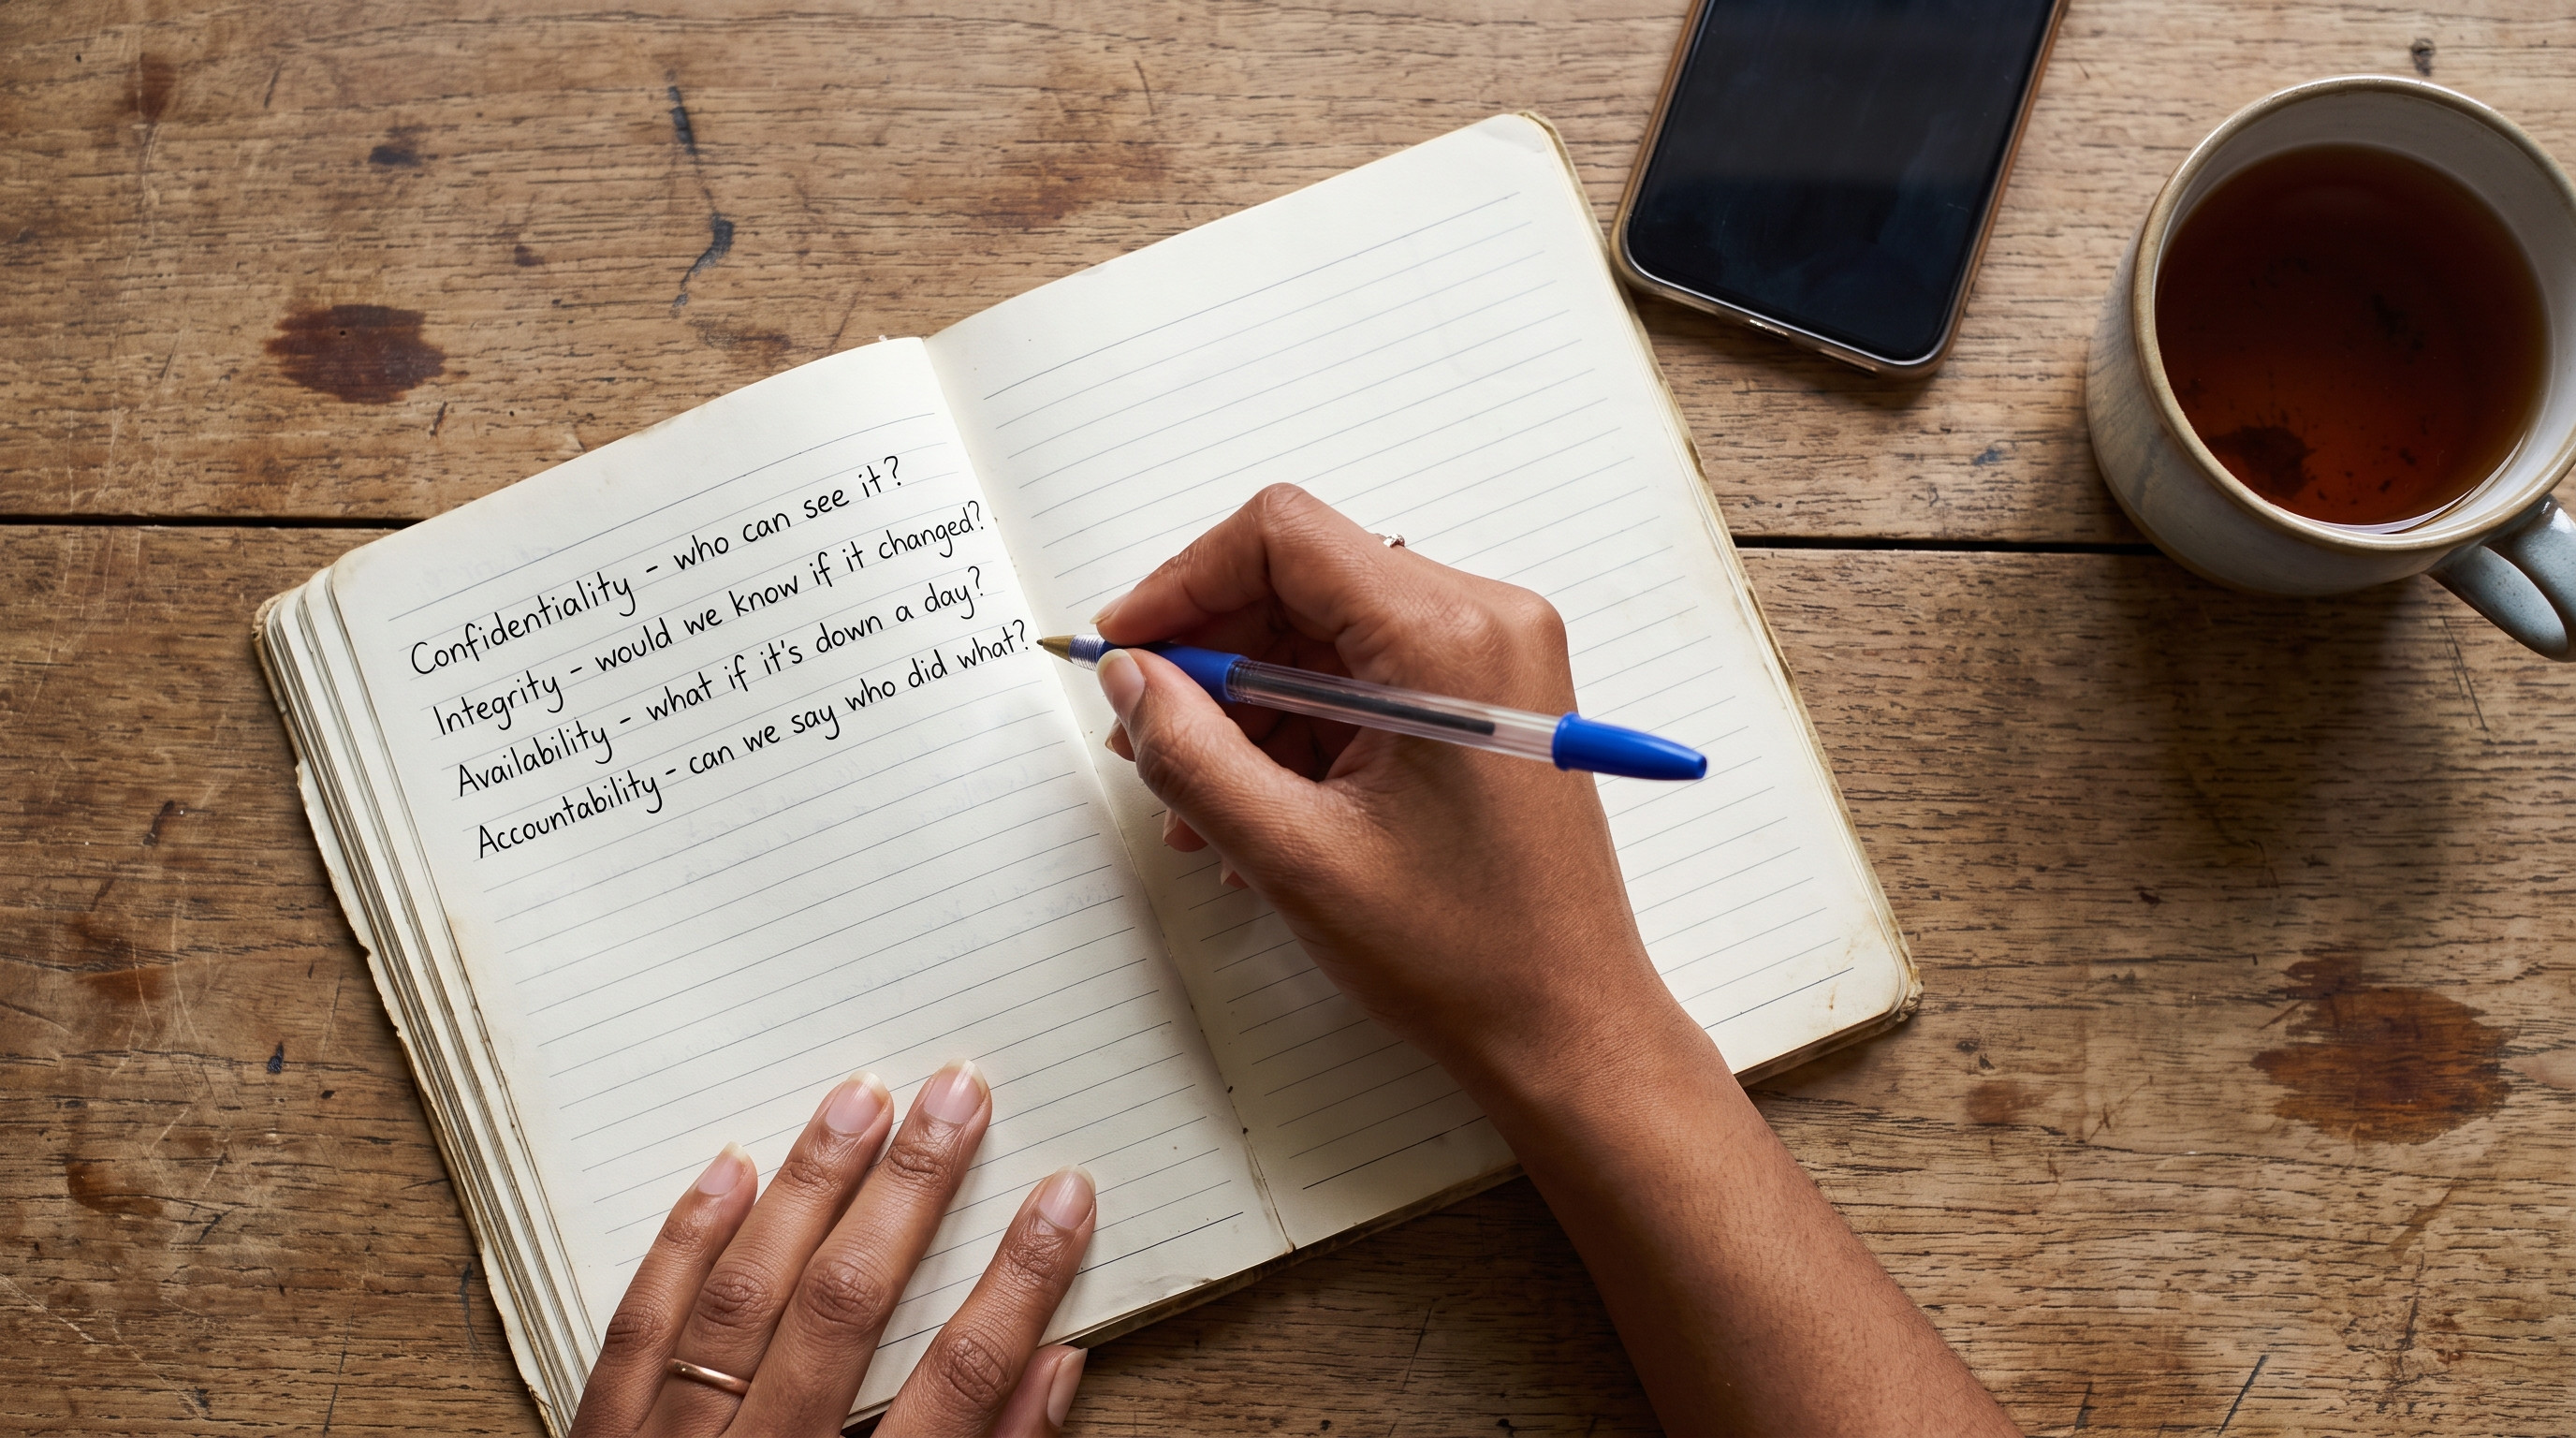 Confidentiality - who can see it?
Integrity - would we know if it changed?
Availability - what if it's down a day?
Accountability - can we say who did what?